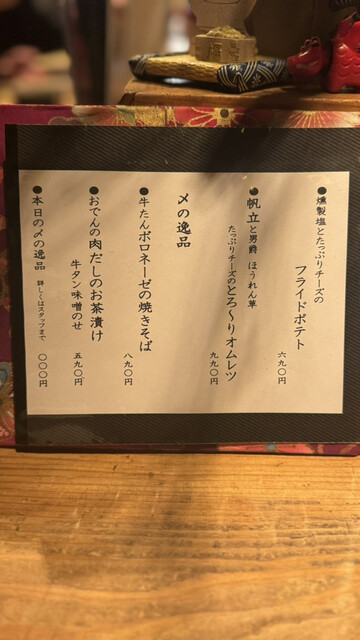 ●燻製塩とたっぷりチーズの
フライドポテト
六九〇円
●帆立と男爵 ほうれん草
たっぷりチーズのとろ〜りオムレツ
九九〇円
〆の逸品
●牛たんボロネーゼの焼きそば
八九〇円
●おでんの肉だしのお茶漬け
牛タン味噌のせ
五九〇円
●本日の〆の逸品 詳しくはスタッフまで
〇〇〇円